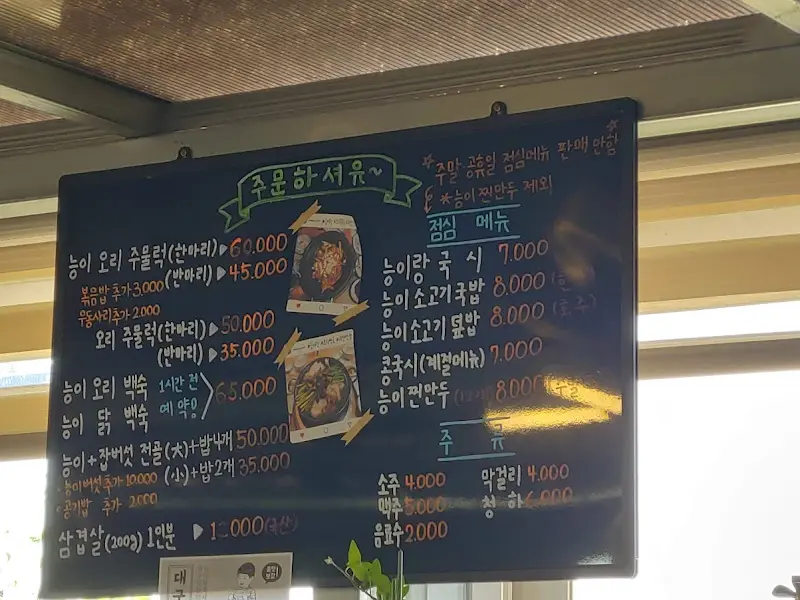 주문하셔유~
능이 오리 주물럭(한마리)▶60.000
(반마리)▶45.000
볶음밥 추가 3.000
우동사리추가 2.000
오리 주물럭(한마리)▶50.000
(반마리)▶35.000
능이 오리 백숙
능이 닭 백숙
1시간 전
예약용
65.000
능이+잡버섯 전골(大)+밥4개 50.000
(小)+밥2개 35.000
·능이버섯추가 10.000
·공기밥 추가 2.000
삼겹살(200g) 1인분 ▶
☆주말·공휴일 점심메뉴 판매 안함
※능이찐만두 제외
점심 메뉴
능이랑 국시 7.000
능이소고기국밥 8.000
능이소고기덮밥 8.000
콩국시(계절메뉴) 7.000
능이찐만두 8.000
주 류
소주 4.000
맥주 5.000
음료수 2.000
막걸리 4.000
청하